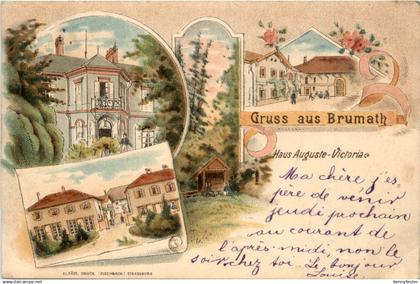 Gruss aus Brumath
Haus Auguste-Victoria
Ma chère j'es-
père de venir
jeudi prochain
au courant de
l'après-midi, non le
soir chez toi. Le bonjour
Louise
ELSÄSS. DRUCK. (FISCHBACH) STRASSBURG
kennyfaster